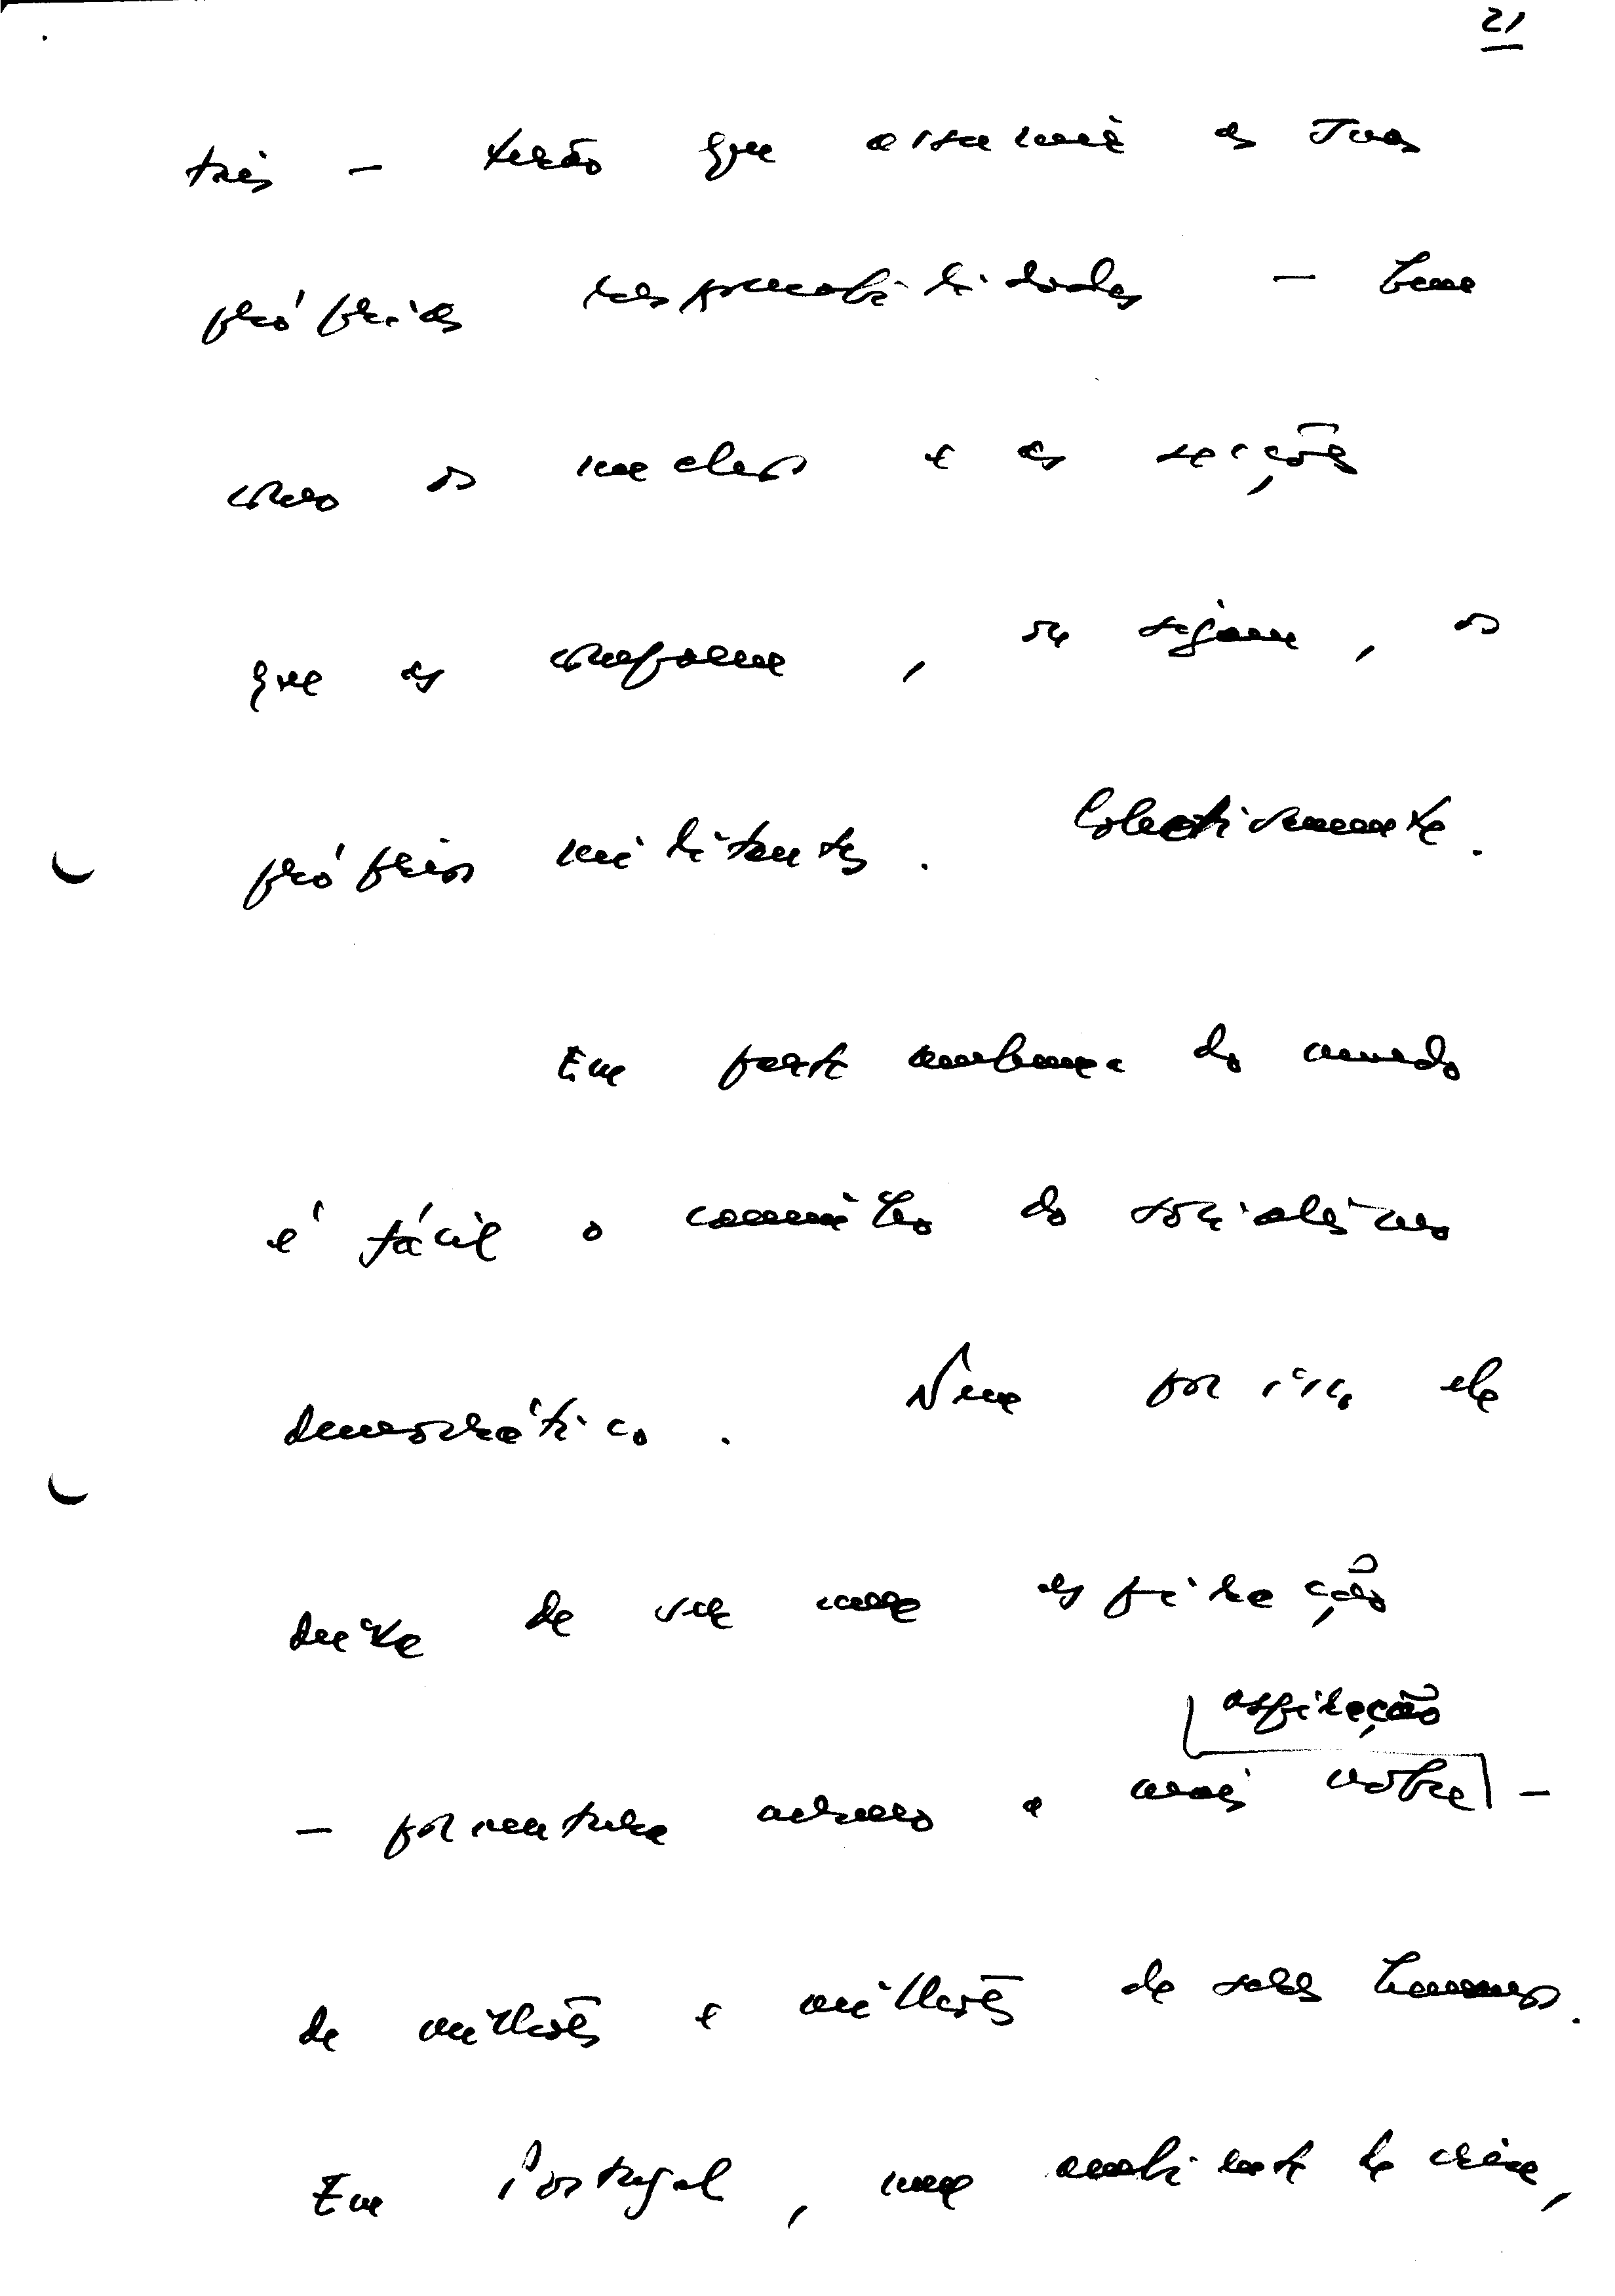 21
três — terão que assumir as suas
próprias responsabilidades — bem
como os núcleos e as secções
que as compõem, ou sejam, os
próprios militantes. Colectivamente.
Em parte nenhuma do mundo
é fácil o caminho do socialismo
democrático. Nem por isso ele
deixa de ser uma aspiração
aspiração
— porventura mesmo a mais nobre —
de milhões e milhões de seres humanos.
Em Portugal, num ambiente de crise,